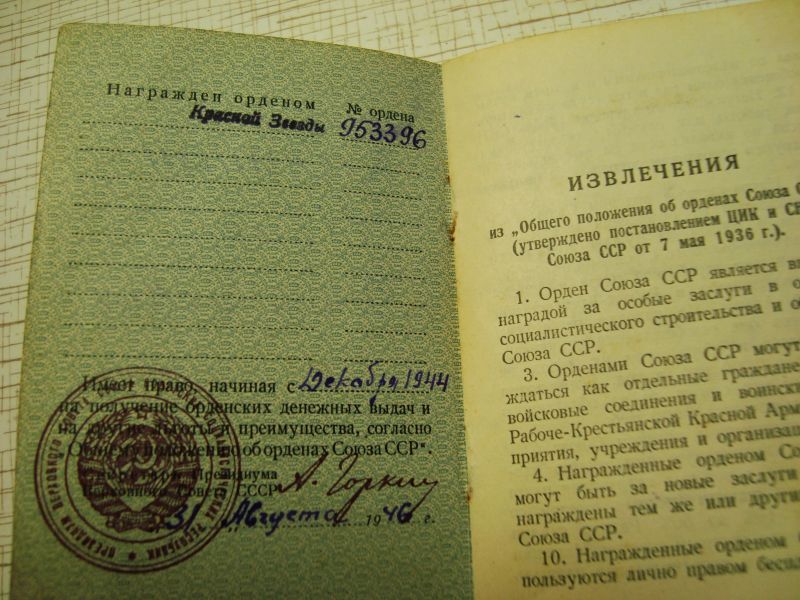 Награжден орденом № ордена
Красной Звезды 953396
Имеет право, начиная с Декабря 1944
на получение орденских денежных выдач и
на другие льготы и преимущества, согласно
„Общему положению об орденах Союза ССР“.
Секретарь Президиума
Верховного Совета СССР А. Горкин
31 Августа 1946 г.
ИЗВЛЕЧЕНИЯ
из „Общего положения об орденах Союза С
(утверждено постановлением ЦИК и СН
Союза ССР от 7 мая 1936 г.).
1. Орден Союза ССР является вы
наградой за особые заслуги в о
социалистического строительства и о
Союза ССР.
3. Орденами Союза ССР могут
ждаться как отдельные граждане
войсковые соединения и воински
Рабоче-Крестьянской Красной Арм
приятия, учреждения и организац
4. Награжденные орденом Со
могут быть за новые заслуги
награждены тем же или други
Союза ССР.
10. Награжденные орденом
пользуются лично правом беспл